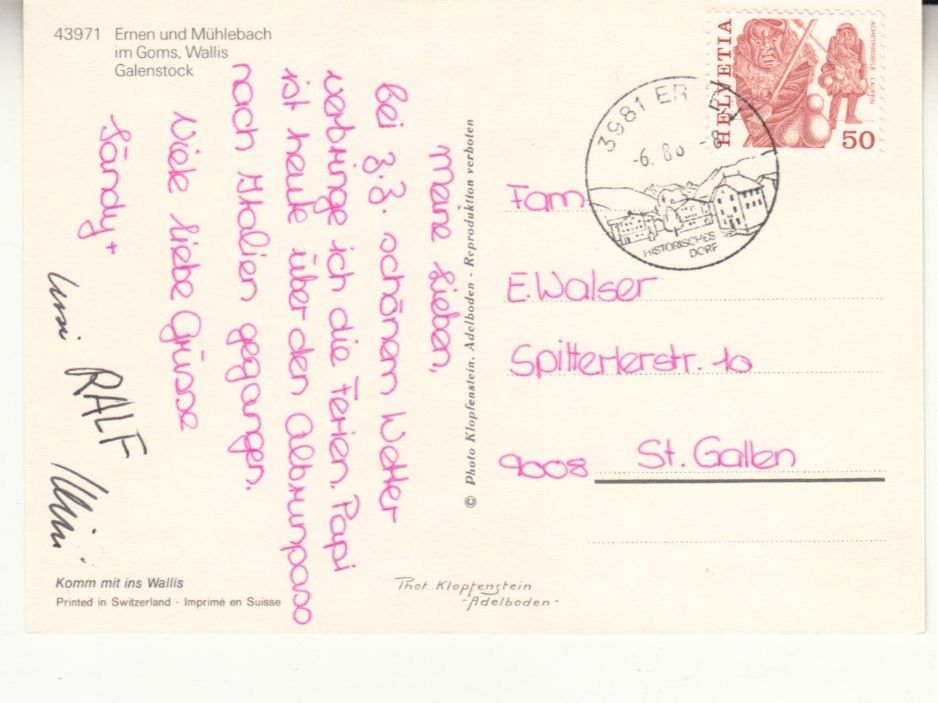 43971 Ernen und Mühlebach
im Goms, Wallis
Galenstock
Meine Lieben,
Bei z.Z. schönem Wetter
verbringe ich die Ferien. Papi
ist heute über den Albrunpass
nach Italien gegangen.
Viele liebe Grüsse
Sändy +
RALF
Komm mit ins Wallis
Printed in Switzerland - Imprimé en Suisse
© Photo Klopfenstein, Adelboden - Reproduktion verboten
Phot. Klopfenstein
- Adelboden -
HELVETIA
ACHETRINGELE LAUPEN
50
3981 ER
-6. 8.80 -8
HISTORISCHES
DORF
Fam.
E. Walser
Spitterlerstr. 10
9008 St. Gallen